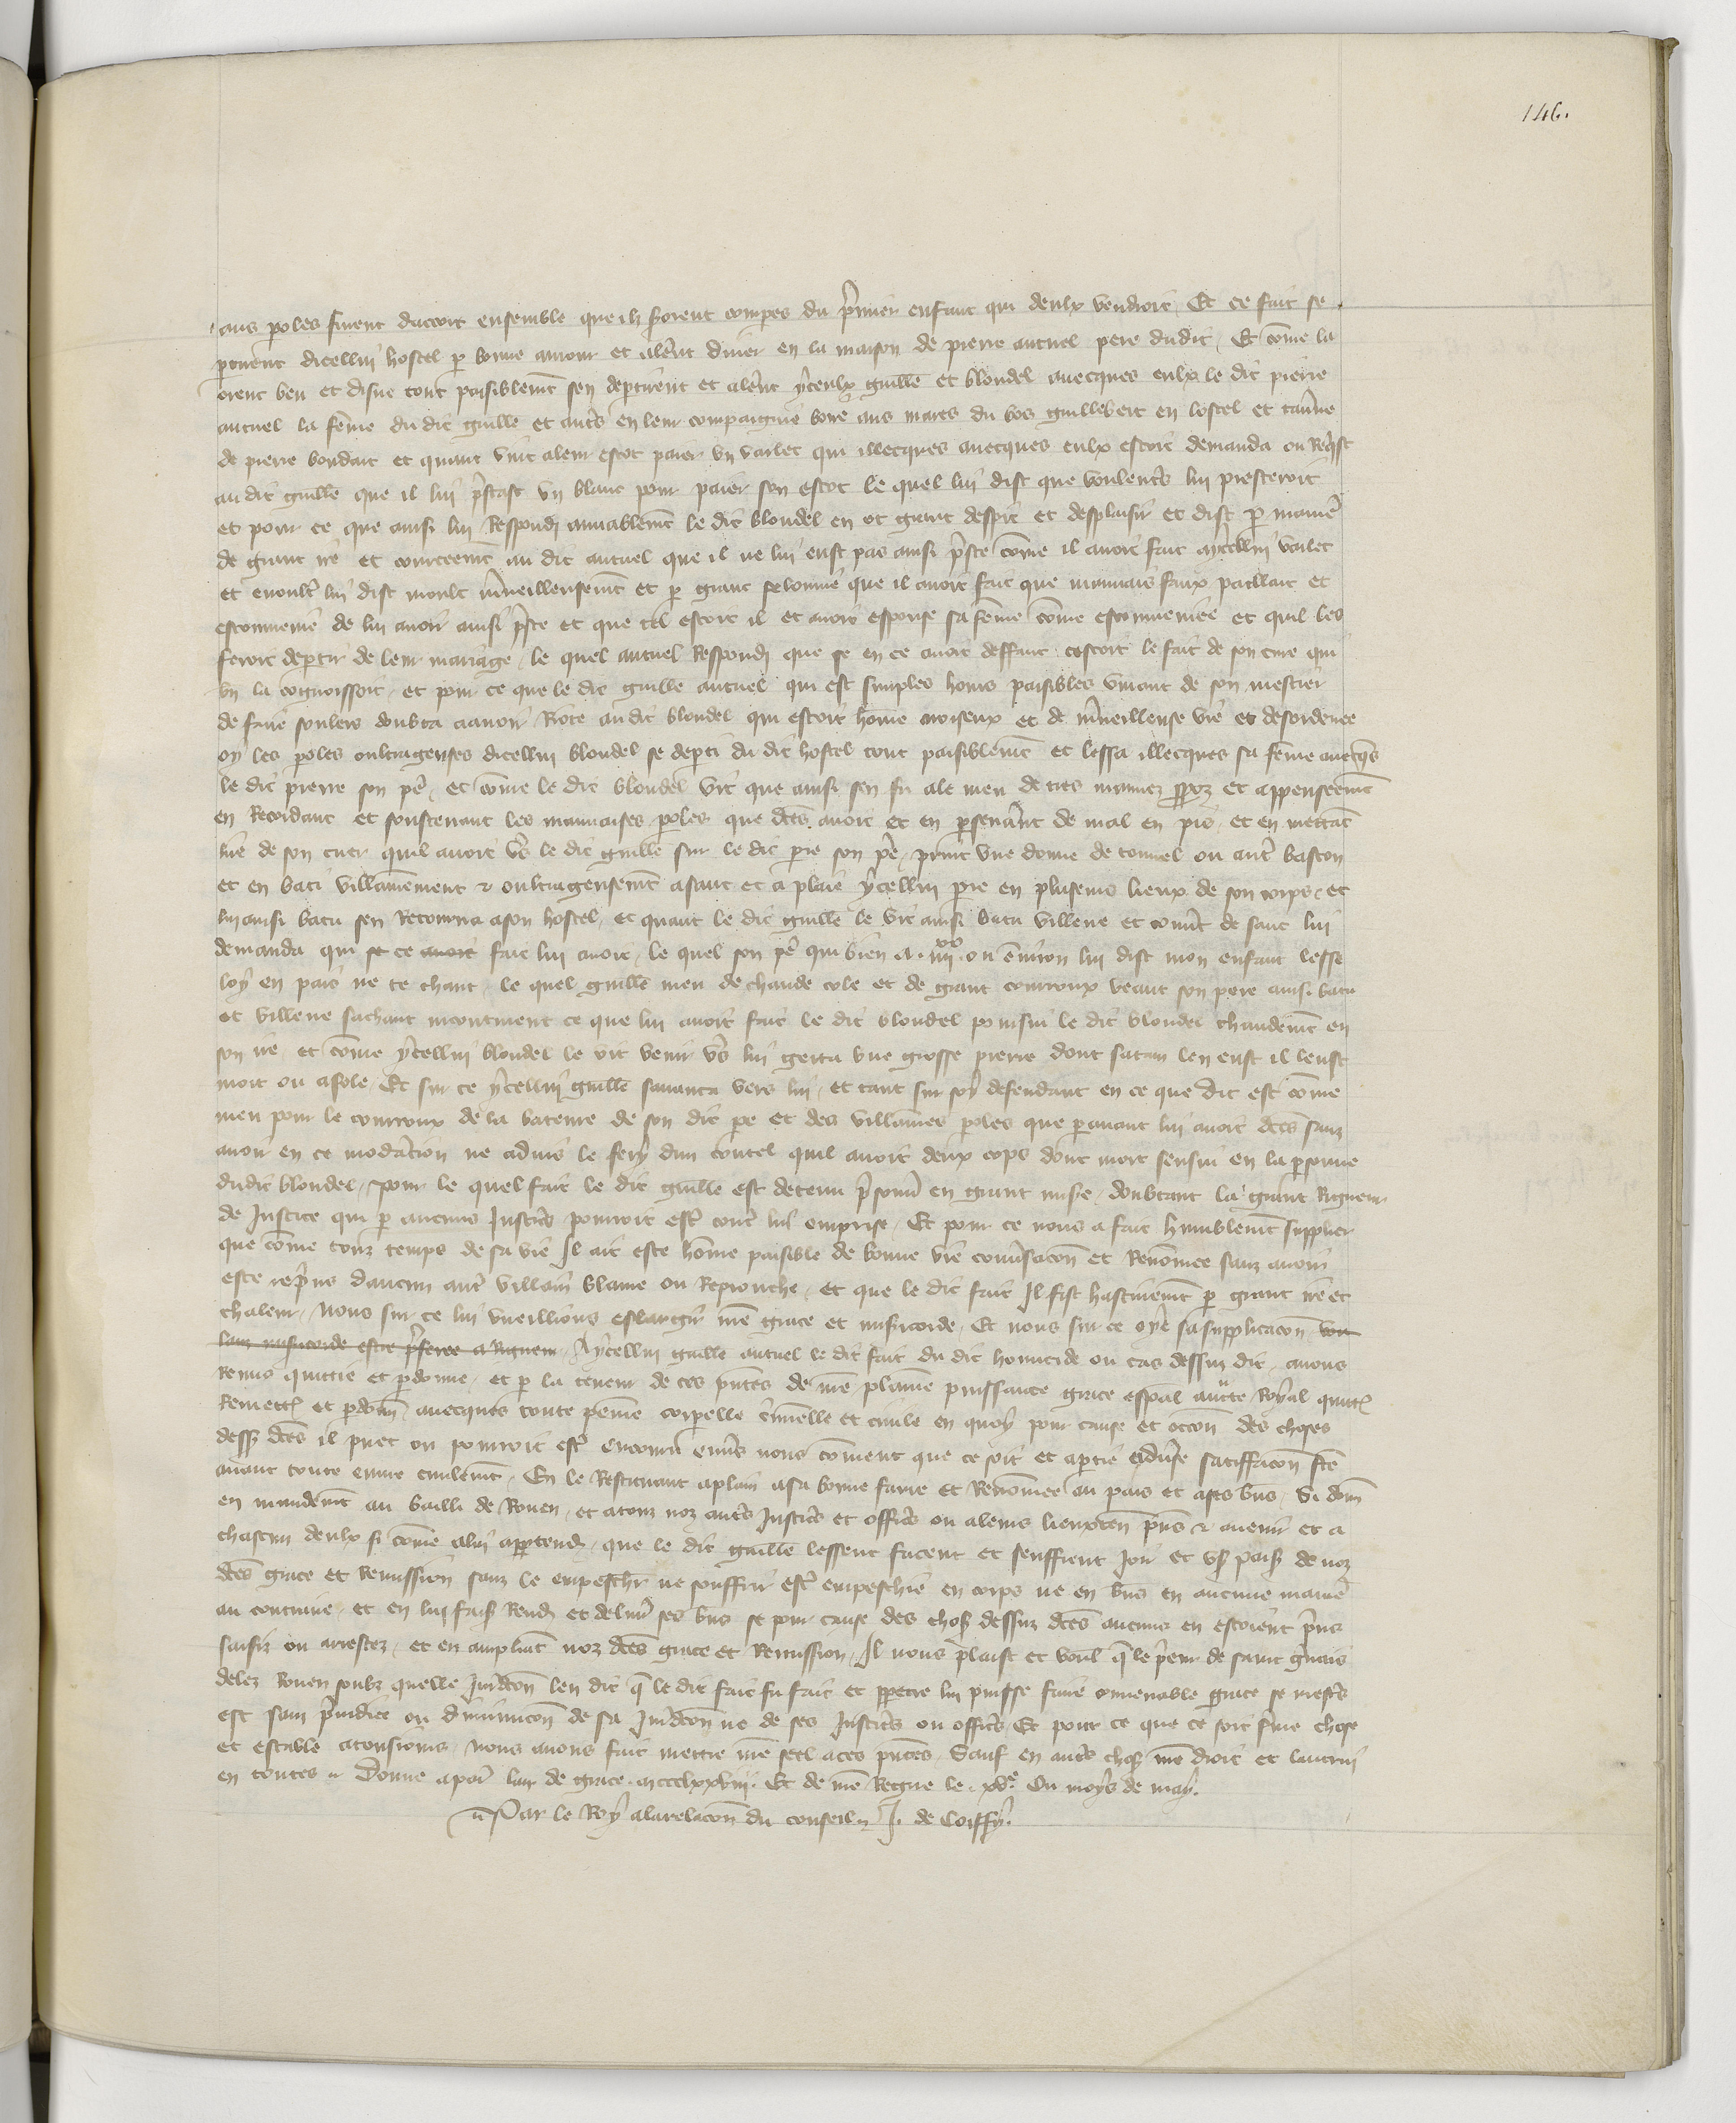 146.
aus poles furent dacort ensemble que ilz seroient comperes du p̃mier enfant qui deulx vendroit Et ce fait se
ptirent dicellui hostel p bonne amour et alerẽt disner en la maison de pierre autuel pere dudit Et cõme la
orent beu et disne tout paisiblemẽt sen deptirent et alerẽt ycculx guille et blondel avecques eulx le dit pierre
autuel la fẽme du dit guille et autrs en leur compaignie boire aus mares du bos guillebert en lostel et taũne
de pierre boudart et quant vint a leur escot paier un varlet qui illecques avecques eulx estoit demanda ou requist
au dit guille que il lui p̃stast un blanc pour paier son escot le quel lui dist que voulentrs lui presteroit
et pour ce que ainsi lui respondi amiablemẽt le dit blondel en ot grant despit et desplaisir et dist p manie
de grant ire et courcemẽt au dit autuel que il ne lui eust pas ainsi p̃ste cõme il avoit fait aycellui varlet
et enoult lui dist moult m̃veilleusemẽt et p grant felonnie que il avoit fait que mauvais faux paillart et
escommenie de lui avoir ainsi p̃ste et que tel estoit il et avoit espouse sa fẽme cõme escommeniee et quil les
feroit deptir de leur mariage le quel autuel respondi que se en ce avoit deffaut cestoit le fait de son cure qui
bn la cognoissoit et pour ce que le dit guille autuel qui est simples homs paisibles vivant de son mestier
de faire soulers doubta a avoir riote au dit blondel qui estoit hõme noiseux et de m̃veilleuse vie et desordenee
oy les poles oultrageuses dicellui blondel se depti du dit hostel tout paisiblemẽt et lessa illecques sa fẽme avecqs
le dit pierre son pe et cõme le dit blondel vit que ainsi sen fu ale meu de tres mauvez ppoz et appenseemẽt
en recordant et soustenant les mauvaises poles que dctes avoit et en pseverãt de mal en pis et en mettãt
lire de son cuer quil avoit vs le dit guille sur le dit pre son pe print une douve de tonnel ou autr baston
et en bati villainement & oultrageusemẽt a sanc et a plaie ycellui pre en plusieurs lieux de son corps et
lui ainsi batu sen retourna a son hostel et quant le dit guille le vit ainsi batu villene et couvt de sanc lui
demanda qui ce avoit fait lui avoit le quel son pe qui bien a iiii xx ou ẽviron lui dist mon enfant lesse
loy en pais ne te chaut le quel guille meu de chaude cole et de grant courroux veant son pere ainsi batu
et villene sachant incontinent ce que lui avoit fait le dit blondel poursui le dit blondel chaudemẽt en
son ire et cõme ycellui blondel le vit venir vs lui getta une grosse pierre dont sataint len eust il leust
mort ou afole Et sur ce ycellui guille savanca vers lui et tant sur soy defendant en ce que dit est cõme
meu pour le courroux de la bateure de son dit pe et des villaines poles que pavant lui avoit dctes sanz
avoir en ce modãcion ne advis le fery dun coutel quil avoit deux cops dont mort sensui en la psonne
dudit blondel pour le quel fait le dit guille est detenu p̃sonn̄ en grant mise doubtant la grant rigueur
de Justice qui p aucuns Justicrs pourroit estr contr lui emprise Et pour ce nous a fait humblemẽt supplier
que cõme touz temps de sa vie Il ait este hõme paisible de bonne vie convsacon et renõmee sanz avoir
este rep̃ns daucun autr villain blame ou reprouche et que le dit fait Il fist hastivemẽt p grant ire et
chaleur Nous sur ce lui vueillions eslargir nrẽ grace et misericorde Et nous sur ce oye sa supplicacon vou
lanz misericorde estre p̃feree a rigueur Aycellui guille autuel le dit fait du dit homicide ou cas dessuz dit avons
remis quittie et pdonne et p la teneur de ces p̃ntes de nrẽ plaine puissance grace espal auctte royal quittz
remettz et pdonnz avecques toute peine corpelle c̃minelle et civile en quoy pour cause et occon des choses
dessz dctes il puet ou pourroit estr encouru envs nous cõment que ce soit et aptie advse satiffacon fte
avant toute euvre civilemẽt En le restituant a plain a sa bonne fame et renõmee au pais et a ses bns Si dõn
en mandemẽt au bailli de Rouen et a touz noz autrs Justicrs et officrs ou a leurs lieuxten p̃ns & avenir et a
chascun deulx si cõme a lui apptendr que le dit guille lessent facent et seuffrent Joir et usr paisz de noz
dctes grace et remission sanz le empeschr ne souffrir estr empeschie en corps ne en bns en aucune manie
au contraire et en lui faisz rendr et delivr ses bns se pour cause des chosz dessuz dctes aucuns en estoient p̃ns
saisiz ou arrestez et en ampliãt noz dctes grace et remission Il nous plaist et voul q̃ le p̃eur de saint gvais
delez Rouen soubz quelle Juridcon len dit q̃ le dit fait fu fait et ppetre lui puisse faire convenable grace se mestrs
est sanz p̃iudice ou diminucon de sa Juridcon ne de ses Justicrs ou officrs Et pour ce que ce soit ferme chose
et estable a tousiours Nous avons fait mettre nrẽ seel a ces p̃ntes Sauf en autrs chosz nrẽ droit et lautrui
en toutes Donne a paris lan de grace mccclxxviii Et de nrẽ regne le xve Ou moys de may
Par le Roy a la relacon du conseil J. de Coiffy